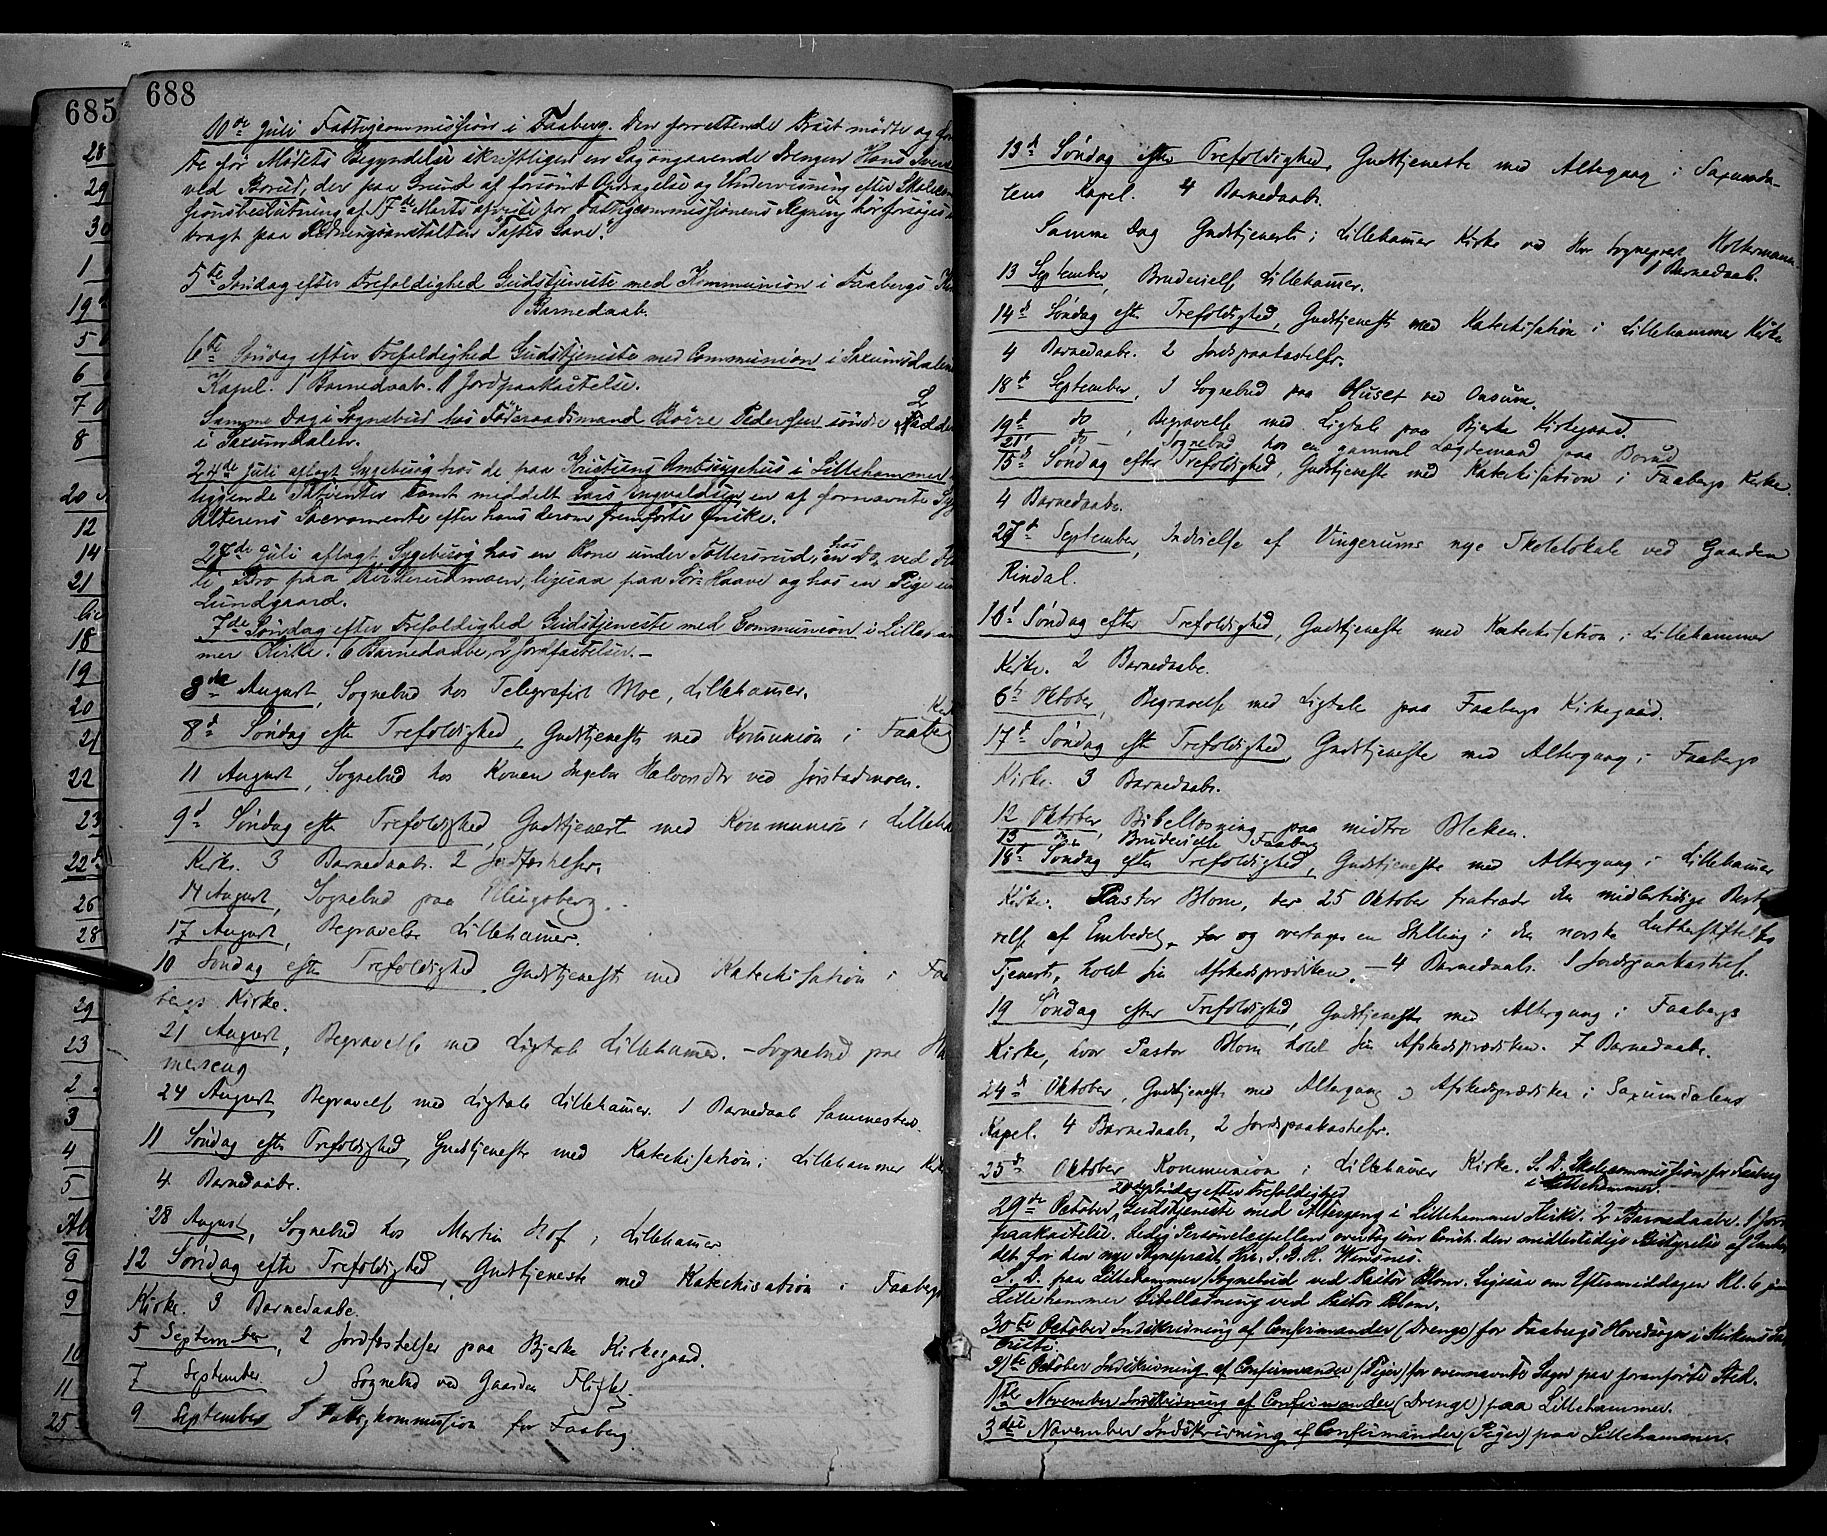 685
688
10de Juli Fattigcommission i Faaberg. Den forrettende Præst mødte og
te før Mødets Begyndelse skriftligen en Sag angaaende Drengen Hans
ved Borud, der paa Grund af forsømt Opdragelse og Undervisning efter
sionsbeslutning af 17de Marts for Fattigcommissionens Regning
bragt paa Redningsanstalten Toftes Gave.
5te Søndag efter Trefoldighed Gudstjeneste med Kommunion i Faabergs
1 Barnedaab.
6te Søndag efter Trefoldighed Gudstjeneste med Communion i Saxumdalens
Kapel. 1 Barnedaab. 1 Jordpaakastelse.
Samme Dag i Sognebud hos Føderaadsmand Pedersen søndre
i Saxumdalen.
24de Juli aflagt Sygebesøg hos de paa Kristians Amtssygehus i Lillehammer
liggende Patienter samt meddelt Lars Ingvaldsen en af fornævnte
Alterens Sacramente efter hans derom fremførte Ønske.
27de Juli aflagt Sygebesøg hos en Kone under hos en Do. ved
Bro paa ligesaa paa Sør-Haave og hos en Pige
Lundgaard.
7de Søndag efter Trefoldighed Gudstjeneste med Communion i Lilleham
mer Kirke. 6 Barnedaabe, 2 Jordfæstelser. -
8de August, Sognebud hos Telegrafist Moe, Lillehamer.
8d Søndag efter Trefoldighed, Gudstjeneste med Komunion i Faaberg
11 August, Sognebud hos Konen Ingebor ved Jørstadmoen.
9d Søndag efter Trefoldighed, Gudstjenest med Kommunion i Lilleha
Kirke. 3 Barnedaab. 2 Jordfæstelser.
14 August, Sognebud paa Ellingsberg.
17 August, Begravelse Lillehamer.
10 Søndag efter Trefoldighed Gudstjeneste med Katechisation i Faa
bergs Kirke.
21 August, Begravelse med Ligtale Lillehamer. - Sognebud paa
mereng
24 August, Begravelse med Ligtale Lillehamer. 1 Barnedaab sammesteds.
11 Søndag efter Trefoldighed, Gudstjeneste med Katechisation i Lillehammer
4 Barnedaabe.
28 August, Sognebud hos Martin Hof, Lillehamer
12 Søndag efter Trefoldighed, Gudstjeneste med Katechisation i Faabergs
Kirke. 3 Barnedaabe
5 September, 2 Jordfæstelser paa Bjerke Kirkegaard.
7 September 1 Sognebud ved Gaarden
9 September Fattigkommission for Faaberg
13d Søndag efter Trefoldighed, Gudstjeneste med Altergang i Saxumda
lens Kapel. 4 Barnedaab.
Samme Dag Gudstjeneste i Lillehamer Kirke ved Hr Sognepræst Holtermann.
1 Barnedaab.
13 September, Brudevielse Lillehamer.
14d Søndag efter Trefoldighed, Gudstjeneste med Katechisation i Lillehammer Kirke
4 Barnedaabe. 2 Jordpaakastelser.
18d September, 1 Sognebud paa Huset ved Onsum.
19d do, Begravelse med Ligtale paa Bjerke Kirkegaard.
21d do - Sognebud hos en gammel Lægdemand paa Borud
15d Søndag efter Trefoldighed, Gudstjeneste med Katechisation i Faabergs Kirke
4 Barnedaabe.
27d September, Indvielse af Vingerums nye Skolelokale ved Gaarden
Rindal.
16d Søndag efter Trefoldighed, Gudstjeneste med Katechisation i Lillehammer
Kirke. 2 Barnedaabe.
6te Oktober, Begravelse med Ligtale paa Faabergs Kirkegaard.
17d Søndag efter Trefoldighed, Gudstjeneste med Altergang i Faabergs
Kirke. 3 Barnedaabe.
12 Oktober, Bibellæsning paa midtre Bleken.
13 do Brudevielse Faaberg
18d Søndag efter Trefoldighed, Gudstjeneste med Altergang i Lillehamer
Kirke. Pastor Blom, der 25 Oktober fratræder den midlertidige Besty
relse af Embedet, for og overtager en Stilling i den norske Lutherstiftelses
Tjeneste, holdt sin Afskedsprædiken. - 4 Barnedaab. 1 Jordpaakastelse.
19d Søndag efter Trefoldighed, Gudstjeneste med Altergang i Faabergs
Kirke, hvor Pastor Blom holdt sin Afskedsprædiken. 7 Barnedaabe.
24d Oktober, Gudstjeneste med Altergang og Afskedsprædiken i Saxumdalens
Kapel. 4 Barnedaab, 2 Jordpaakastelser.
25de Oktober Kommunion i Lillehamer Kirke. S. D. Skolecommission for Faaberg
i Lillehammer.
20de Søndag efter Trefoldighed
29de October, Gudstjeneste med Altergang i Lillehammer Kirke. 2 Barnedaabe. 1 Jord
paakastelse. Personelcapellan overtog som Const. den midlertidige Bestyrelse af Embe
det for den nye Sognepræst, Hr. S. B. H. Winsnes.
S. D. paa Lillehammer Sognebud ved Pastor Blom. Ligesaa om Eftermiddagen Kl. 6
Lillehammer Bibellæsning ved Pastor Blom.
30te October Indskrivning af Confirmander (Drenge) for Faabergs Hovedsogn i Kirkens
31te October Indskrivning af Confirmander (Piger) for ovennævnte Sogn paa foranførte Sted.
1ste November Indskrivning af Confirmander (Drenge) paa Lillehammer.
3die November Indskrivning af Confirmander (Piger) paa Lillehammer.